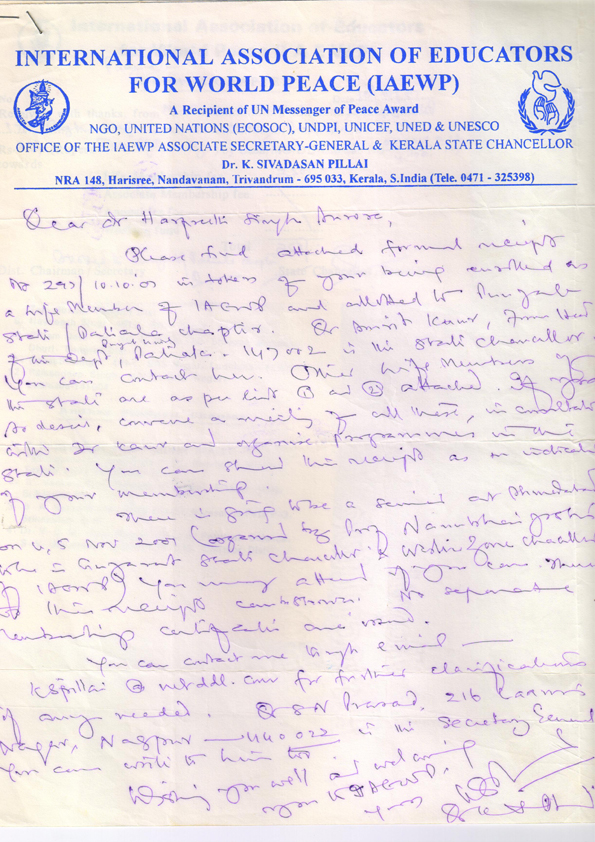 INTERNATIONAL ASSOCIATION OF EDUCATORS
FOR WORLD PEACE (IAEWP)
A Recipient of UN Messenger of Peace Award
NGO, UNITED NATIONS (ECOSOC), UNDPI, UNICEF, UNED & UNESCO
OFFICE OF THE IAEWP ASSOCIATE SECRETARY-GENERAL & KERALA STATE CHANCELLOR
Dr. K. SIVADASAN PILLAI
NRA 148, Harisree, Nandavanam, Trivandrum - 695 033, Kerala, S.India (Tele. 0471 - 325398)
Dear Dr Harpreet Singh
Please find attached formal receipt
No 295/10.10.01 in token of your being enrolled as
a Life Member of IAEWP and allotted to Punjab
State/Patiala chapter. Dr Amrit Kaur, Former Head
of Dept, Patiala - 147002 is the State Chancellor.
You can contact her. Other Life Members of
the State are as per list ① and ② attached. If you
so desire, convene a meeting of all these, in consultation
with Dr Kaur and organise programmes in the
State. You can show this receipt as an indication
of your membership.
There is going to be a seminar at Ahmedabad
on 4, 5 Nov 2001 (organised by Prof
who is Gujarat State Chancellor & Western Zone Chancellor
of IAEWP) You may attend if you can.
this receipt can be shown. No separate
membership certificates are issued.
You can contact me through email -
kspillai @ md4.vsnl.net.in for further clarifications
if any needed. Dr S N Prasad, 216 Laxmi
Nagar, Nagpur - 440022 is the Secretary General
You can write to him too.
Wishing you well and welcoming
you to IAEWP.
Yours